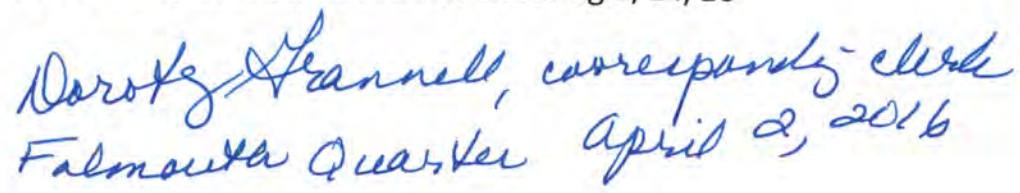 Dorothy Grannell, corresponding clerk
Falmouth Quarter April 2, 2016